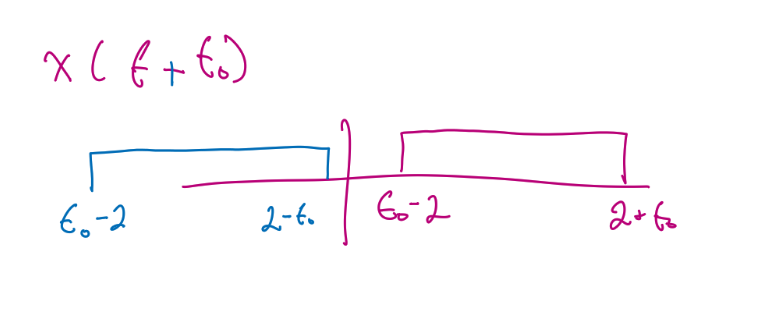 x(t+t₀)
t₀-2 2-t₀ t₀-2 2+t₀